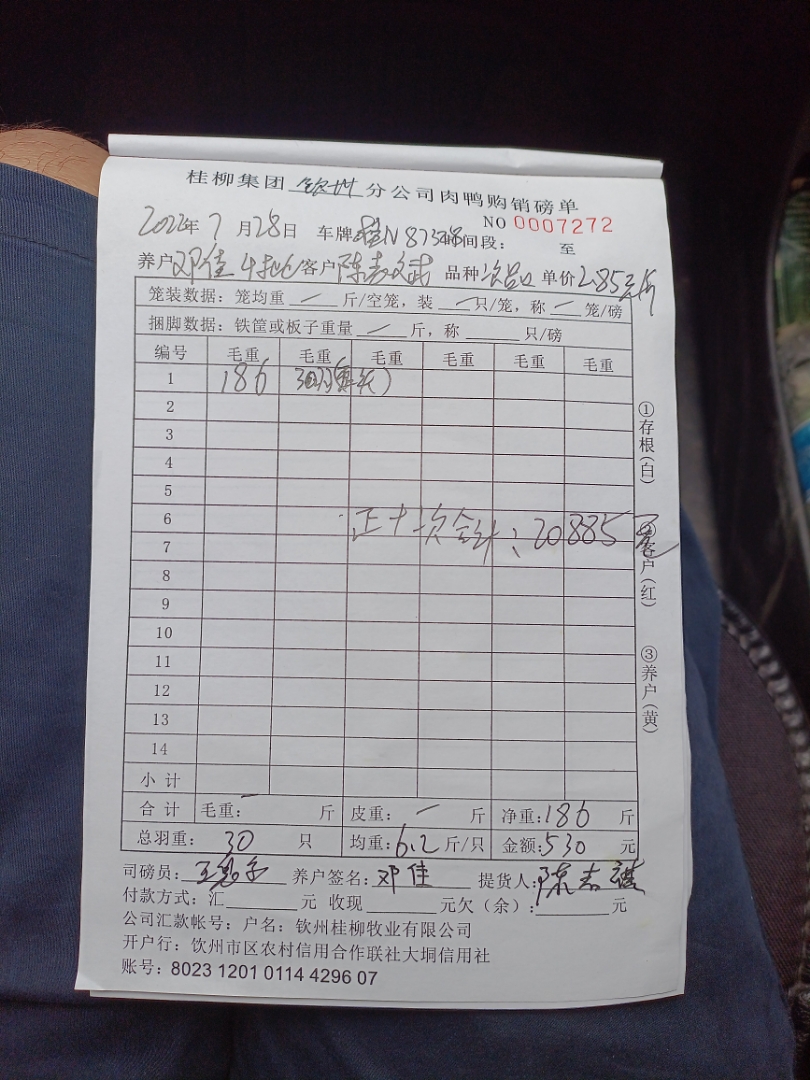 桂柳集团 钦州 分公司肉鸭购销磅单
NO 0007272
2022年7月28日 车牌:桂N 87348 时间段: 至
养户 邓佳 客户 陈志斌 品种 次品 单价 2.85元/斤
笼装数据:笼均重 — 斤/空笼,装 — 只/笼,称 — 笼/磅
捆脚数据:铁筐或板子重量 — 斤,称 只/磅
编号 毛重 毛重 毛重 毛重 毛重 毛重
1 186 30只
2
3
4
5
6
正+次合计:20885元
7
8
9
10
11
12
13
14
小计
合计 毛重:— 斤 皮重:— 斤 净重:186 斤
总羽重:30 只 均重:6.2斤/只 金额:530 元
司磅员: 养户签名:邓佳 提货人:陈志
付款方式:汇 元 收现 元欠(余): 元
公司汇款帐号:户名:钦州桂柳牧业有限公司
开户行:钦州市区农村信用合作联社大垌信用社
账号:8023 1201 0114 4296 07
①存根(白)
客户(红)
③养户(黄)